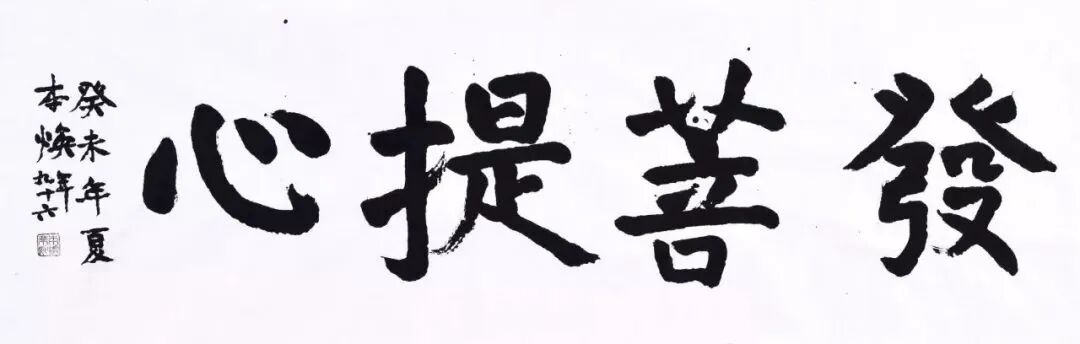 發菩提心
癸未年夏
本煥年九十六